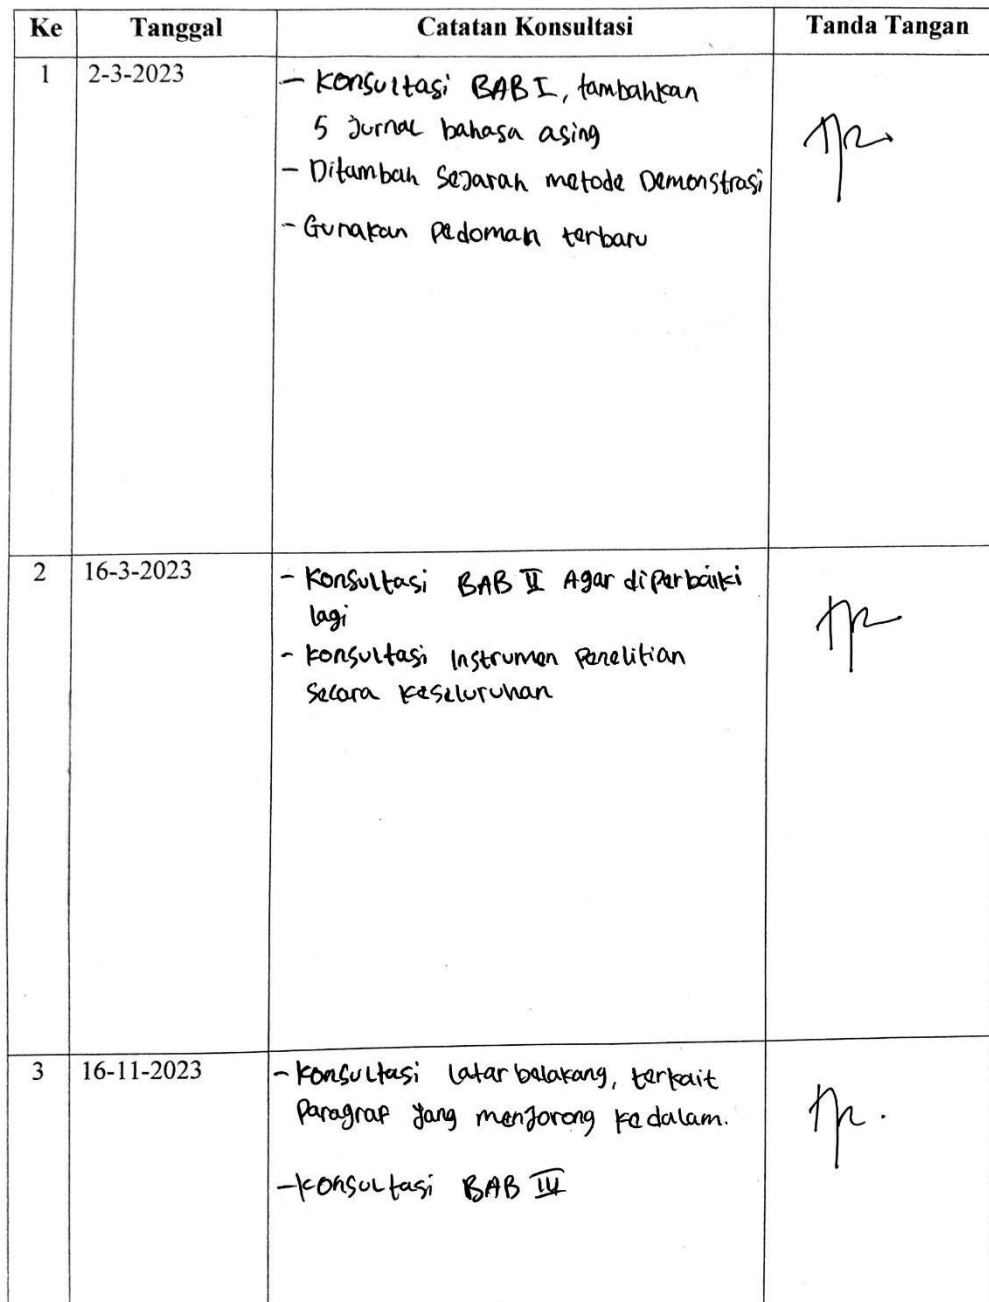 Ke Tanggal Catatan Konsultasi Tanda Tangan
1 2-3-2023 - Konsultasi BAB I, tambahkan
5 Jurnal bahasa asing
- Ditambah Sejarah metode Demonstrasi
- Gunakan pedoman terbaru
2 16-3-2023 - Konsultasi BAB II Agar diperbaiki
lagi
- Konsultasi Instrumen Penelitian
Secara Keseluruhan
3 16-11-2023 - Konsultasi latar belakang, terkait
Paragraf yang menjorong kedalam.
- Konsultasi BAB IV